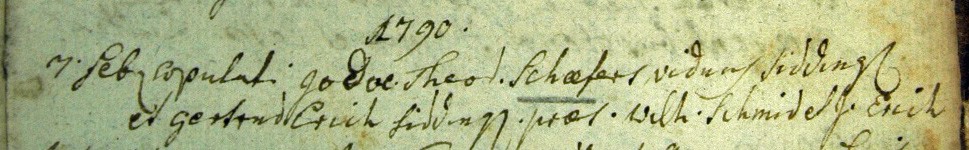 1790.
7. Feb copulati Theod. Schaefers viduus Siddings
et Gertrud Erich Siddings. præs. Wilh. Schmidt J. Erich